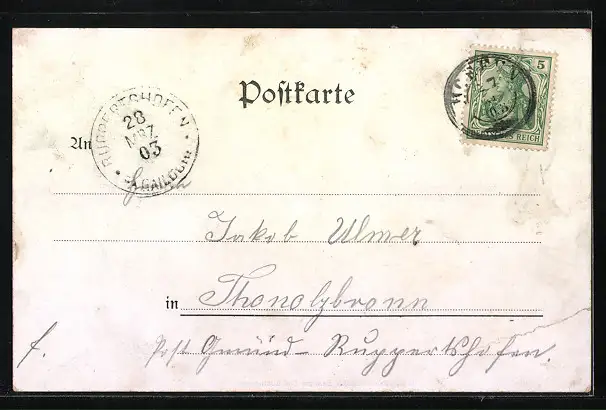 Postkarte
5
REICH
RUPPERTSHOFEN
28
MRZ
03
An
Jakob Ulmer
in Thonolzbronn
f. Post Gmünd - Ruppertshofen.